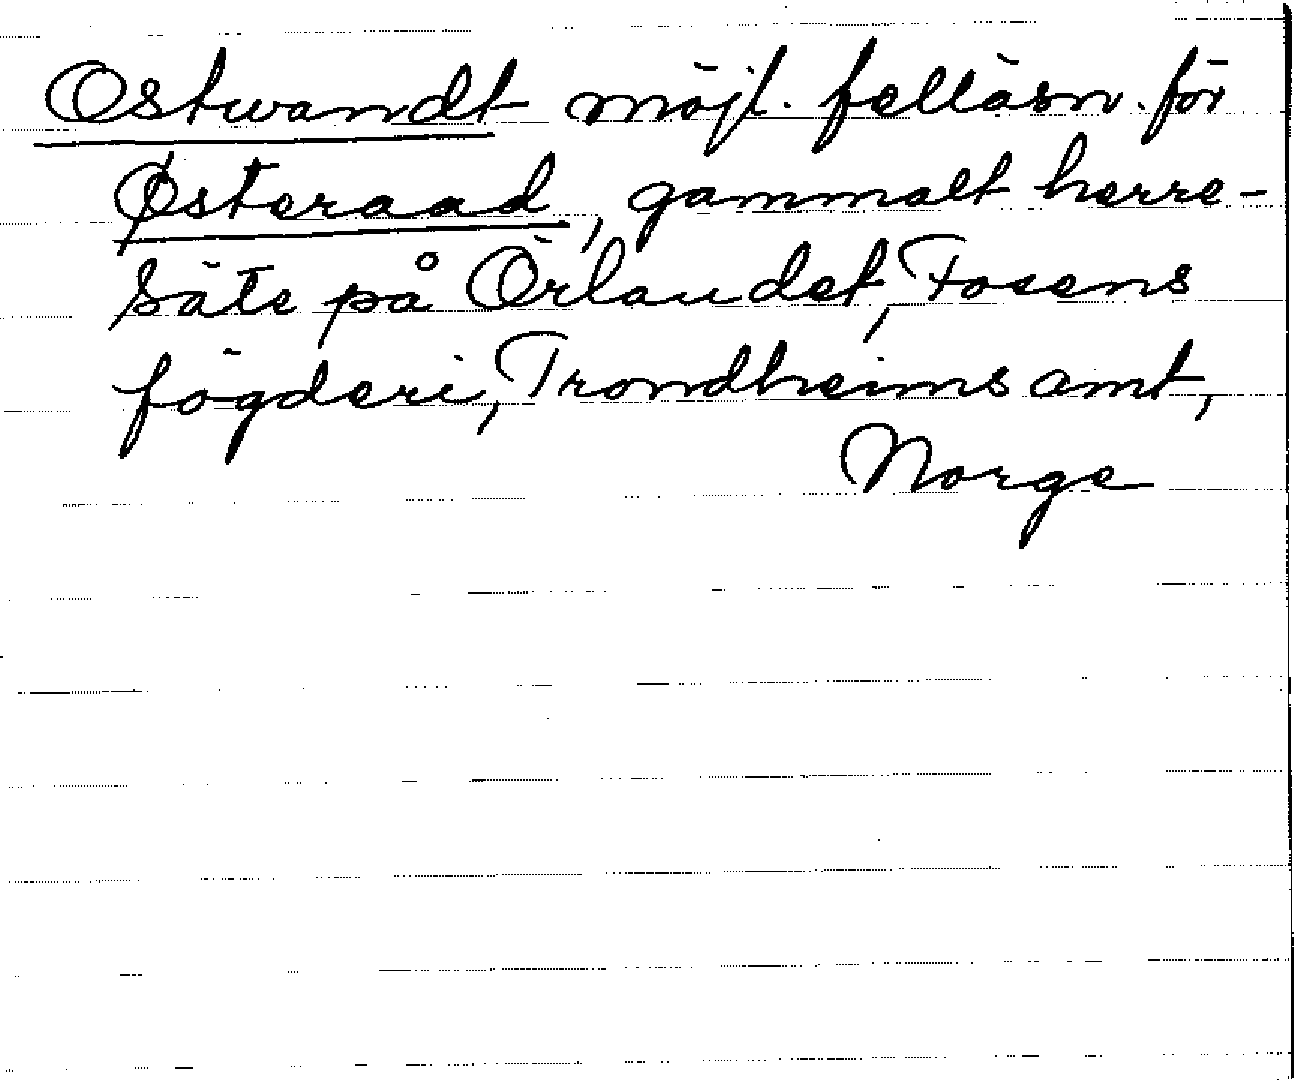 Ostwandt möjl. felläsn. för
Østeraad, gammalt herre-
säte på Örlandet, Fosens
fögderi, Trondheims amt,
Norge